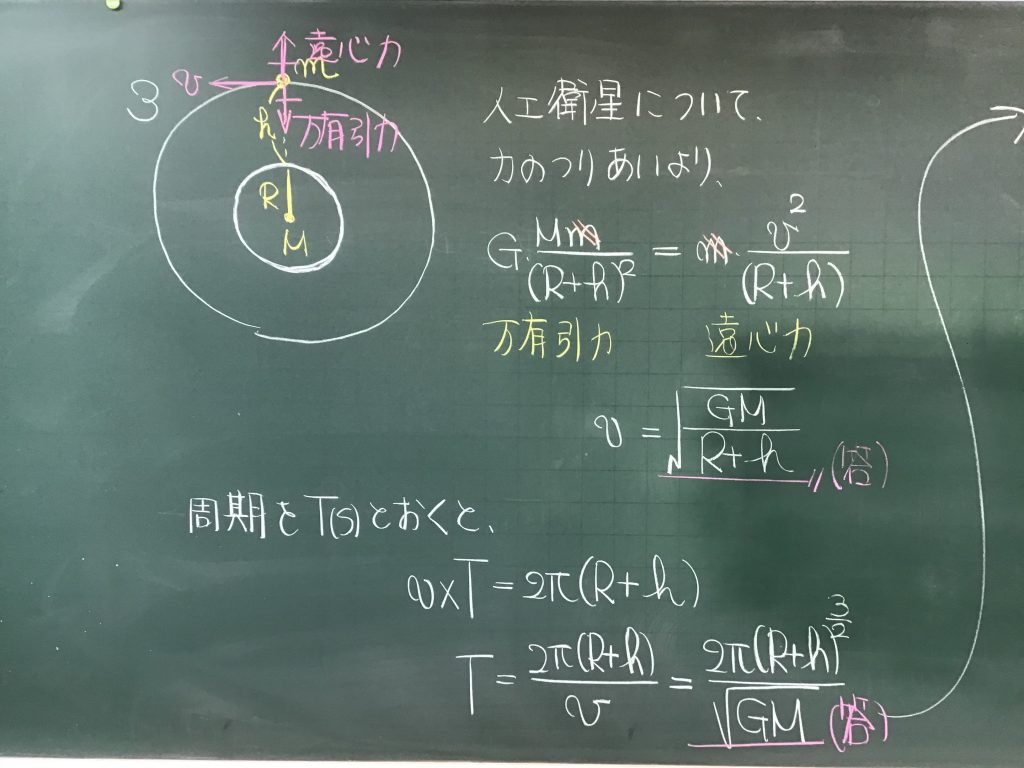 3
遠心力
m
v
h
万有引力
R
M
人工衛星について、
力のつりあいより、
G・Mm/(R+h)² = m・v²/(R+h)
万有引力 遠心力
v = √(GM/(R+h)) (答)
周期をT(s)とおくと、
v×T = 2π(R+h)
T = 2π(R+h)/v = 2π(R+h)^(3/2)/√GM (答)